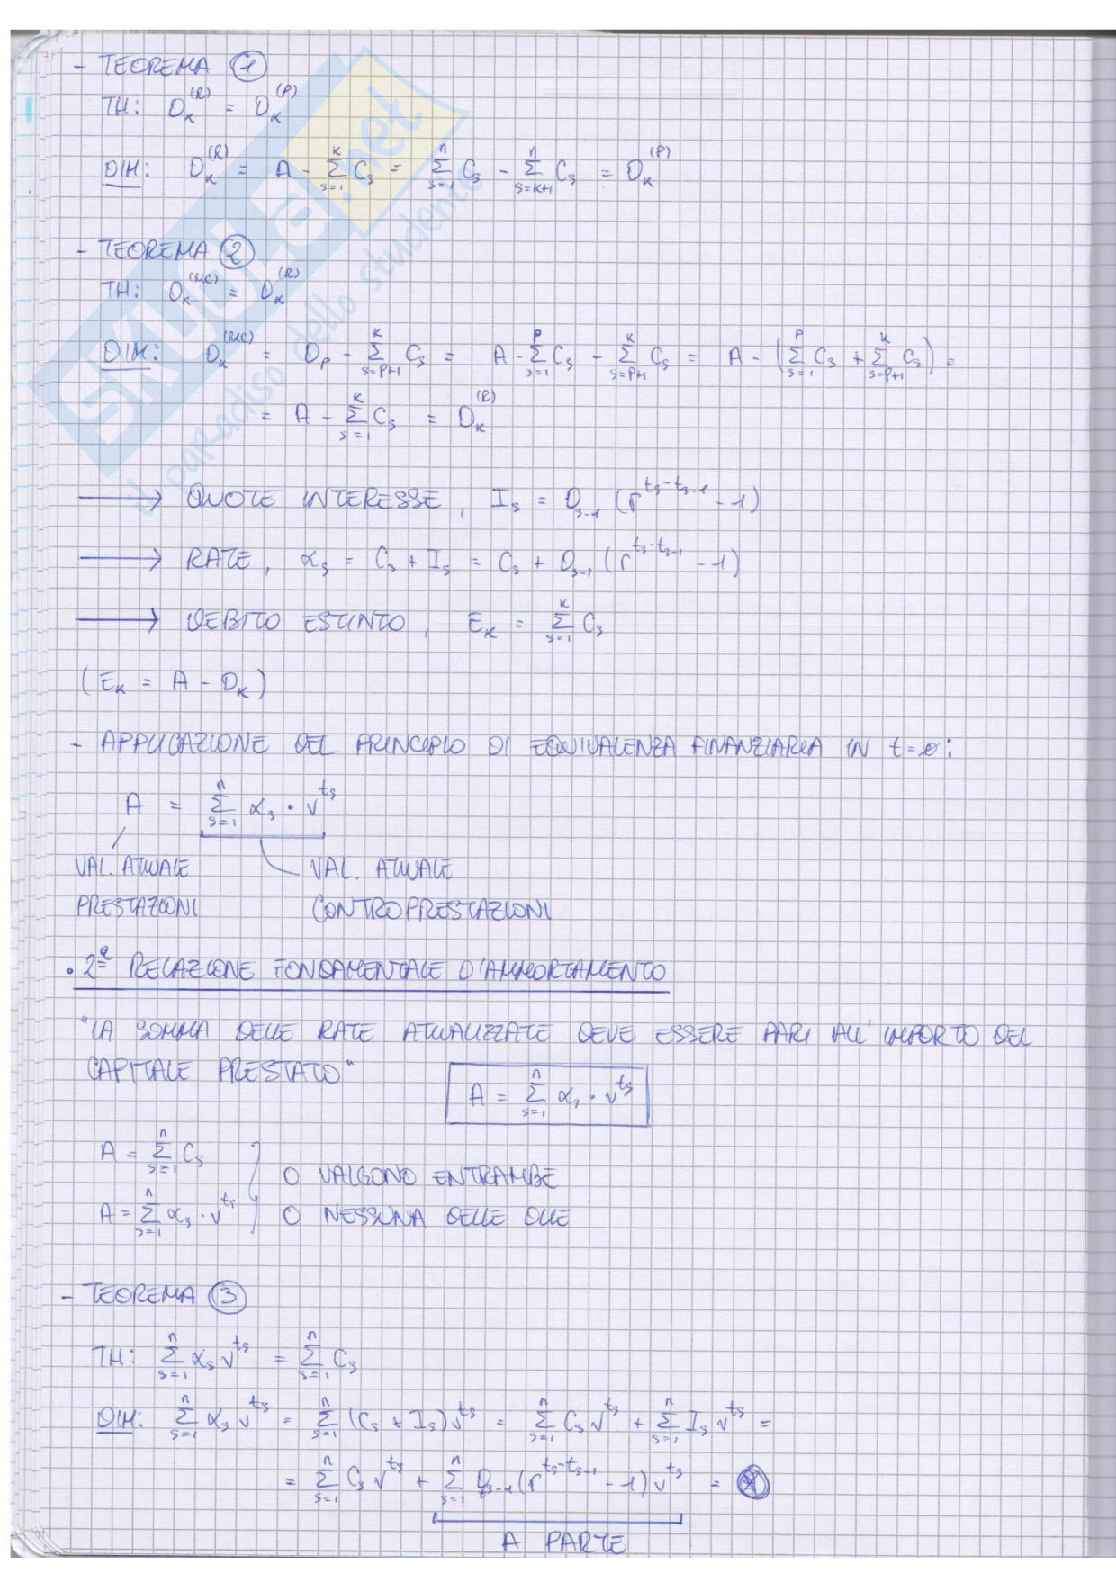 - TEOREMA ①
TH: D_K^(R) = D_K^(P)
DIM: D_K^(R) = A - Σ_{s=1}^{K} C_s = Σ_{s=1}^{n} C_s - Σ_{s=K+1}^{n} C_s = D_K^(P)
- TEOREMA ②
TH: D_K^(RIC) = D_K^(R)
DIM: D_K^(RIC) = D_P - Σ_{s=P+1}^{K} C_s = A - Σ_{s=1}^{P} C_s - Σ_{s=P+1}^{K} C_s = A - (Σ_{s=1}^{P} C_s + Σ_{s=P+1}^{K} C_s) =
= A - Σ_{s=1}^{K} C_s = D_K^(R)
→ QUOTE INTERESSE, I_s = D_{s-1} (r^{t_s - t_{s-1}} - 1)
→ RATE, α_s = C_s + I_s = C_s + D_{s-1} (r^{t_s - t_{s-1}} - 1)
→ DEBITO ESTINTO, E_K = Σ_{s=1}^{K} C_s
(E_K = A - D_K)
- APPLICAZIONE DEL PRINCIPIO DI EQUIVALENZA FINANZIARIA IN t=0:
A = Σ_{s=1}^{n} α_s · v^{t_s}
VAL. ATTUALE VAL. ATTUALE
PRESTAZIONI CONTROPRESTAZIONI
• 2ª RELAZIONE FONDAMENTALE D'AMMORTAMENTO
"LA SOMMA DELLE RATE ATTUALIZZATE DEVE ESSERE PARI ALL'IMPORTO DEL
CAPITALE PRESTATO"
A = Σ_{s=1}^{n} α_s · v^{t_s}
A = Σ_{s=1}^{n} C_s } O VALGONO ENTRAMBE
A = Σ_{s=1}^{n} α_s · v^{t_s} } O NESSUNA DELLE DUE
- TEOREMA ③
TH: Σ_{s=1}^{n} α_s v^{t_s} = Σ_{s=1}^{n} C_s
DIM: Σ_{s=1}^{n} α_s v^{t_s} = Σ_{s=1}^{n} (C_s + I_s) v^{t_s} = Σ_{s=1}^{n} C_s v^{t_s} + Σ_{s=1}^{n} I_s v^{t_s} =
= Σ_{s=1}^{n} C_s v^{t_s} + Σ_{s=1}^{n} D_{s-1} (r^{t_s - t_{s-1}} - 1) v^{t_s} = ⊛
A PARTE
SKUOLA.net
il paradiso dello studente